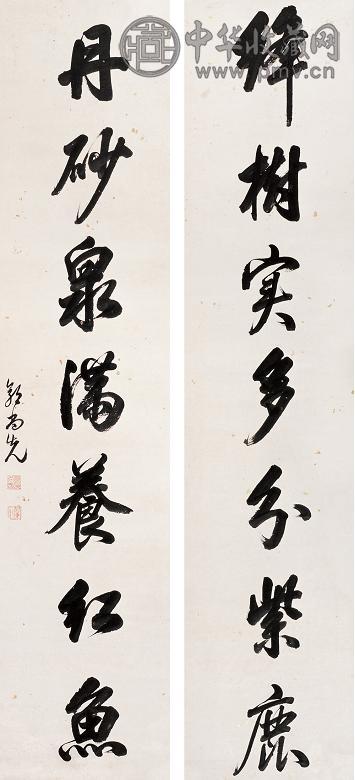 中华收藏网
www.pmv.cn
絳樹實多分紫鹿
丹砂泉滿養紅魚
郭尚先